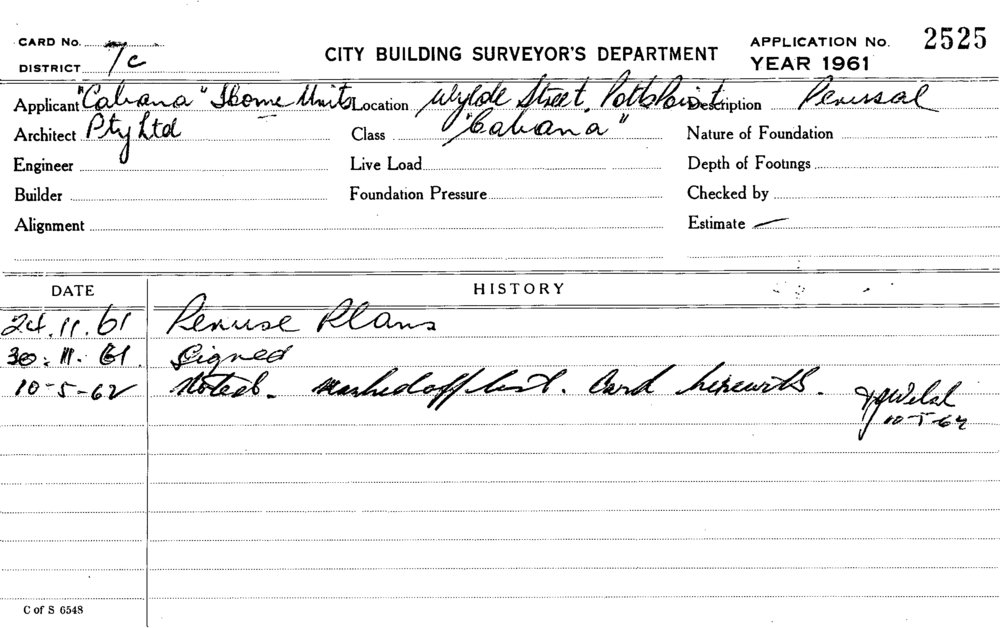 CARD No.
DISTRICT 7c
CITY BUILDING SURVEYOR'S DEPARTMENT
APPLICATION No. 2525
YEAR 1961
Applicant "Cabana" Home Units Location Wylde Street, Potts Point Description Perusal
Architect Pty Ltd Class "Cabana" Nature of Foundation
Engineer Live Load Depth of Footings
Builder Foundation Pressure Checked by
Alignment Estimate —
DATE HISTORY
24.11.61 Peruse Plans
30.11.61 Signed
10-5-62 Noted. marked off list. Card herewith.
Welsh
10-5-62
C of S 6548